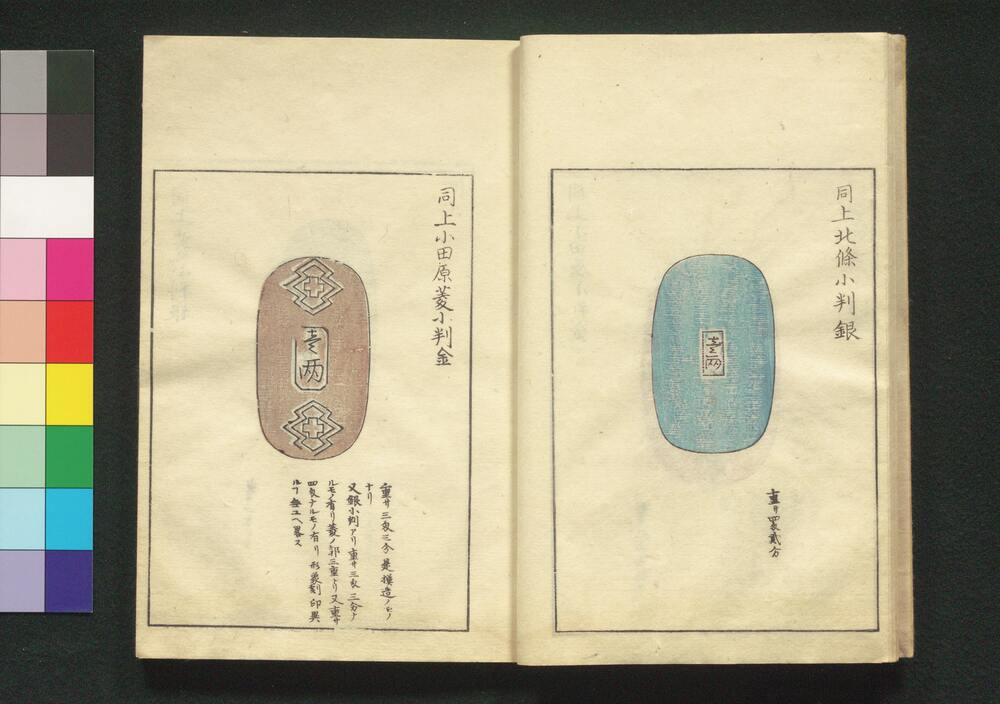 同上北條小判銀
壹両
重サ四匁貳分
同上小田原菱小判金
壹両
重サ三匁三分是摸造ノモノ
ナリ
又銀小判アリ重サ三匁三分ナ
ルモノ有リ菱ノ郭三重ナリ又重サ
四匁ナルモノ有リ形象刻印異
ルヿ無ユヘ畧ス